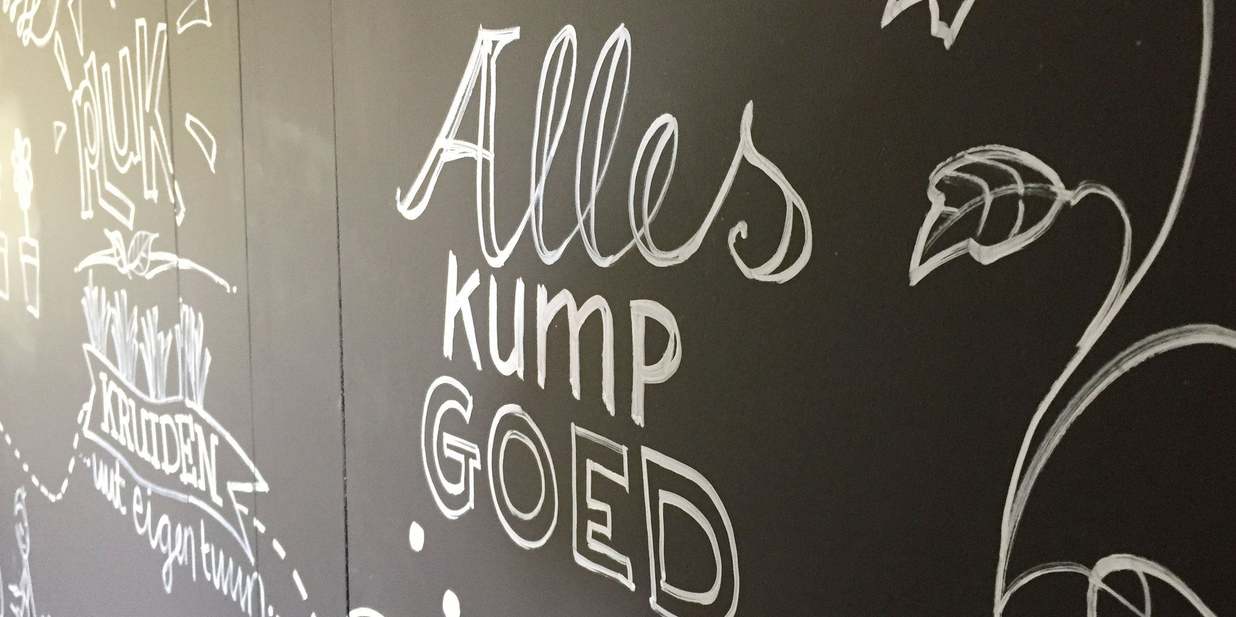 PLUK
KRUIDEN
uut eigen tuun
Alles
kump
GOED